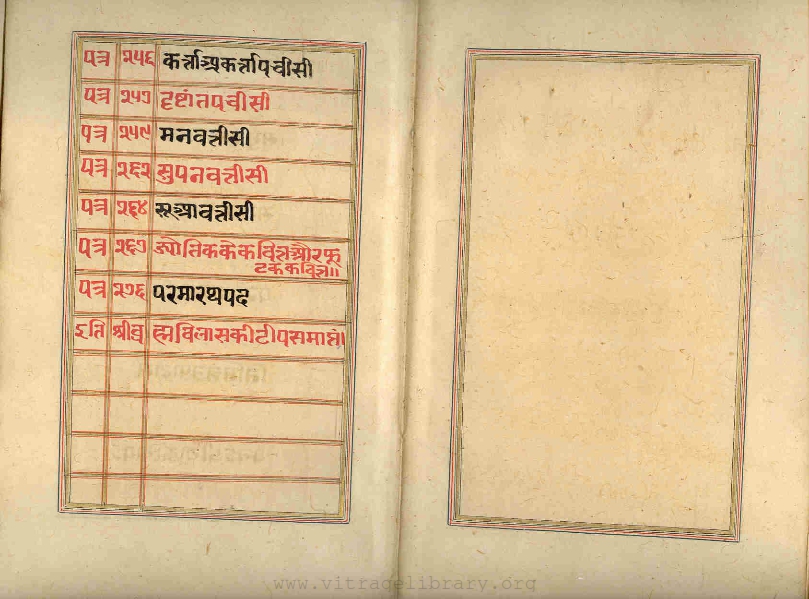 पत्र २५६ कर्त्ताअकर्त्तापचीसी
पत्र २५७ दृष्टांतपचीसी
पत्र २५९ मनवत्तीसी
पत्र २६२ सुपनवत्तीसी
पत्र २६४ सूआवत्तीसी
पत्र २६७ ज्योतिककेकवित्तऔरफू
टकरकवित्त॥
पत्र २७६ परमारथपद
इति श्रीब्र ह्मविलासकीटीपसमाप्तं।
www.vitragelibrary.org